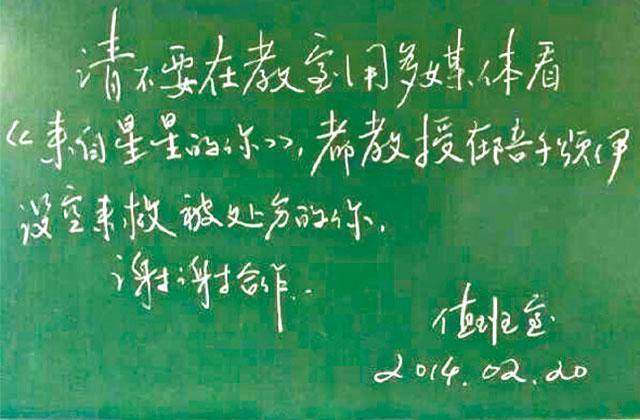 请不要在教室用多媒体看
《来自星星的你》,都教授在陪千颂伊
没空来救被处分的你.
谢谢合作..
值班室
2014.02.20